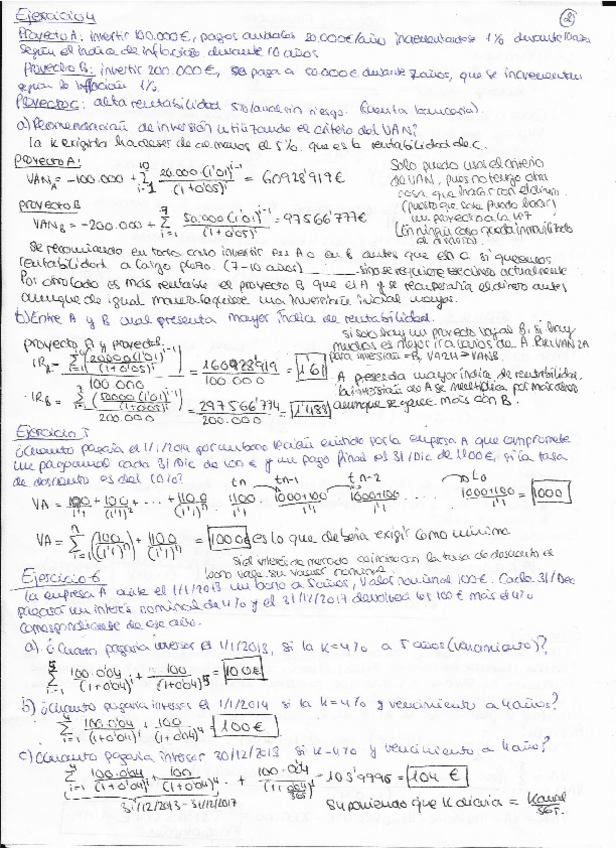 Ejercicio 4
②
Proyecto A: invertir 100.000€, pagos anuales 20.000€/año incrementandose 1% durante 10 años
según el indice de inflacción durante 10 años.
Proyecto B: invertir 200.000€, se paga a 50.000€ durante 7 años, que se incrementan
segun la inflación 1%.
Proyecto C: alta rentabilidad 5% anual sin riesgo. (cuenta bancaria).
a) Recomendación de inversión utilizando el criterio del VAN?
la K exigida ha de ser de al menos el 5% que es la rentabilidad de C.
Proyecto A:
VAN_A = -100.000 + Σ_{i=1}^{10} 20.000(1'01)^{i-1}/(1+0'05)^i = 60928'919€
Proyecto B
VAN_B = -200.000 + Σ_{i=1}^{7} 50.000(1'01)^{i-1}/(1+0'05)^i = 97566'777€
Solo puedo usar el criterio
de VAN, pues no tengo otra
cosa que hacer con el dinero.
(puesto que solo puedo hacer)
un proyecto a la vez
(En ningún caso queda inmovilizado
el dinero).
Se recomienda en todo caso invertir en A o en B antes que en C a si queremos
rentabilidad a largo plazo. (7-10 años) sino se requiere ese dinero actualmente
Por otro lado es más rentable el proyecto B que el A y se recuperaría el dinero antes
aunque de igual manera requiere una inversión inicial mayor.
b) Entre A y B cual presenta mayor indice de rentabilidad.
Proyecto A y Proyecto B:
IR_A = Σ_{i=1}^{10} (20000(1'01)^{i-1}/(1+0'05)^i) / 100.000 = 160928'919/100.000 = 1'61
IR_B = Σ_{i=1}^{7} (50000(1'01)^{i-1}/(1+0'05)^i) / 200.000 = 297566'774/200.000 = 1'488
si solo hay un proyecto B, si hay
muchos es mejor varios de A
para inversión = B, VA2A > VANB.
A presenta mayor indice de rentabilidad.
la inversión de A se multiplica por más dinero
aunque se gane más con B.
Ejercicio 5
¿Cuanto pagaría el 1/1/2014 por un bono recién emitido por la empresa A que compromete
un pago anual cada 31/Dic de 100€ y un pago final el 31/Dic de 1100€, si la tasa
de descuento es del 10%?
VA = 100/1'1 + 100/(1'1)² + ... + 1100/(1'1)ⁿ
tn tn-1 tn-2
1100/1'1 1000+100/1'1 1000+100/1'1 ... 1000+100/1'1 = 1000
VA = Σ_{i=1}^{n} (100/(1'1)^i) + 1000/(1'1)ⁿ = 1000€ es lo que debería exigir como mínimo
si el interés de mercado coincide con la tasa de descuento el
bono vale su valor nominal.
Ejercicio 6
la empresa A emite el 1/1/2013 un bono a 5 años, valor nominal 100€. Cada 31/Dec
pagará un interés nominal del 4% y el 31/12/2017 devolverá los 100€ más el 4%
correspondiente de ese año.
a). ¿Cuanto pagaría inversor el 1/1/2013, si la K=4% a 5 años (vencimiento)?
Σ_{i=1}^{5} 100·0'04/(1+0'04)^i + 100/(1+0'04)^5 = 100€
b) ¿Cuanto pagaría inversor el 1/1/2014 si la K=4% y vencimiento a 4 años?
Σ_{i=1}^{4} 100·0'04/(1+0'04)^i + 100/(1+0'04)^4 = 100€
c) ¿Cuanto pagaría inversor 30/12/2013 si K=4% y vencimiento a 4 años?
Σ_{i=1}^{4} 100·0'04/(1+0'04)^i + 100/(1+0'04)^4 + 100·0'04/(1+0'04/365)^1 = 103'9996 = 104€
31/12/2013 - 31/12/2017
suponiendo que K diaria = K anual/365.